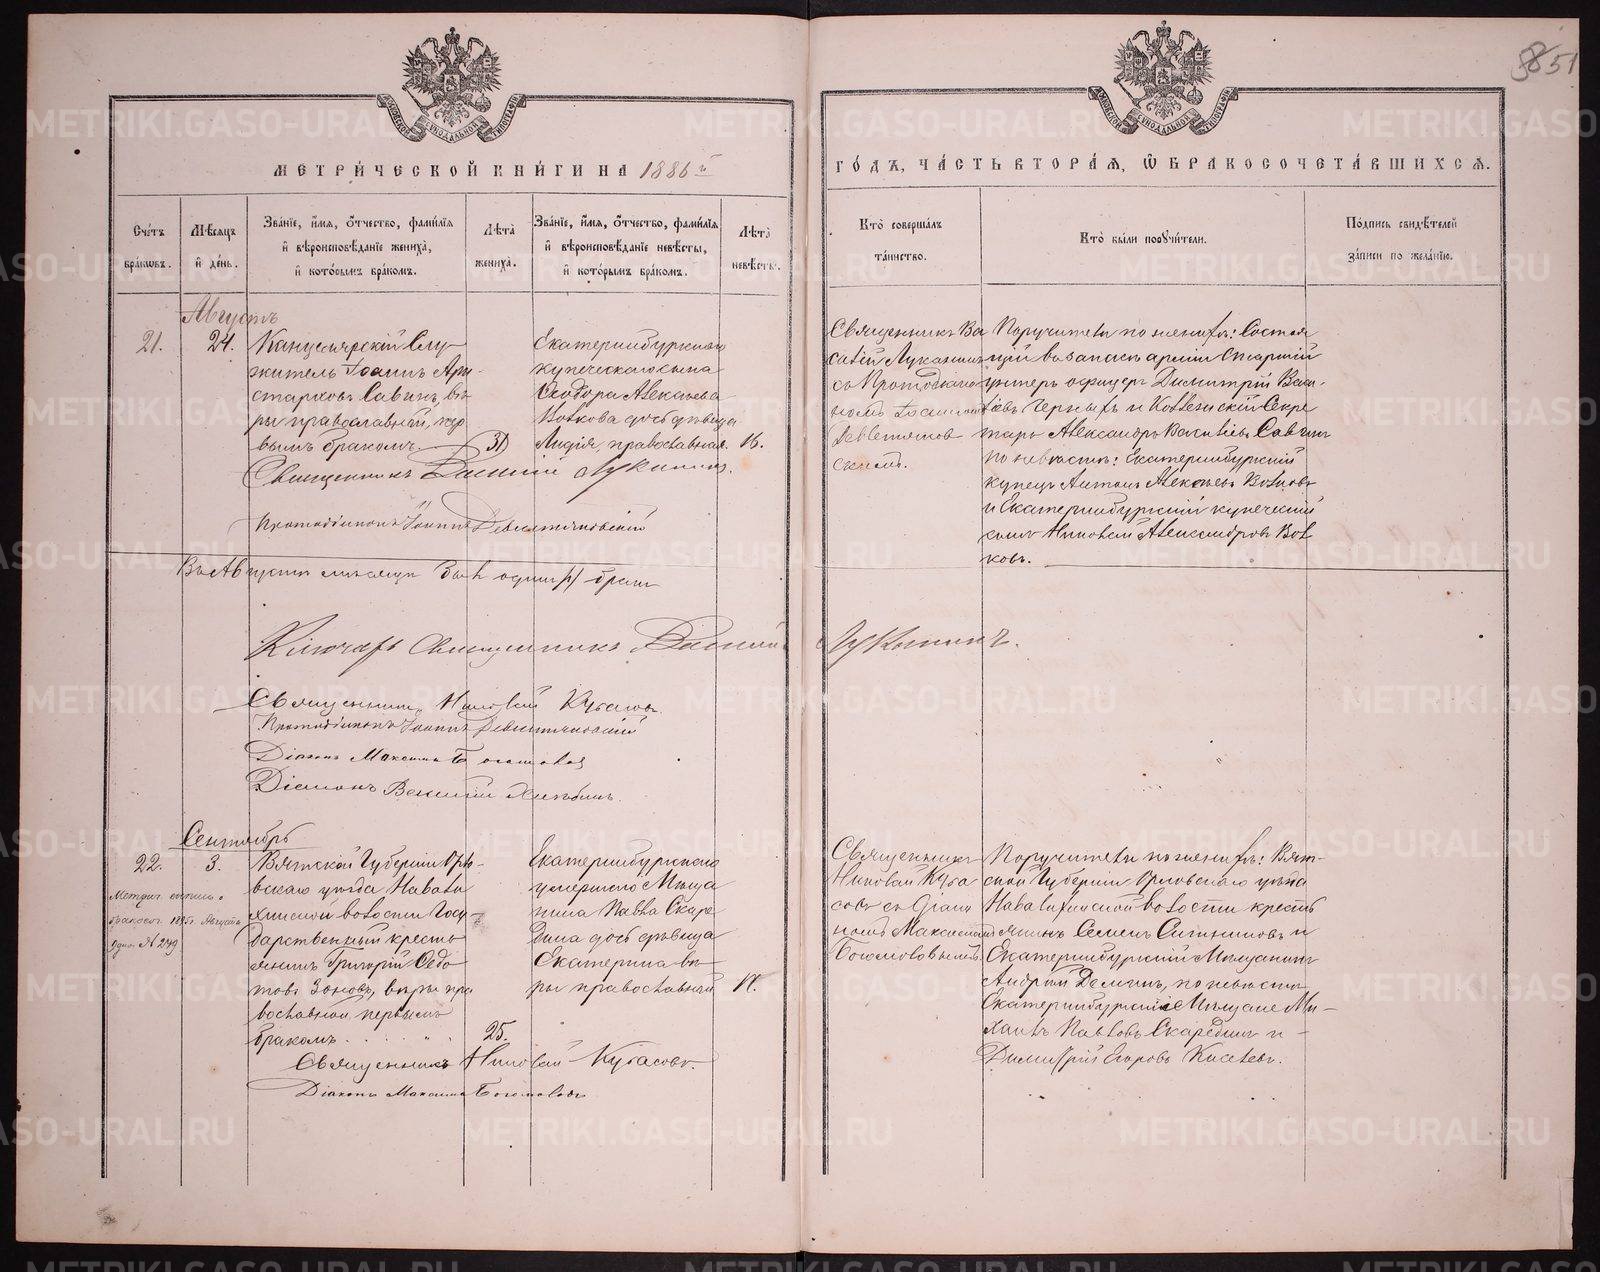 58 51
МЕТРИЧЕСКОЙ КНИГИ НА 1886 й
ГОДЪ, ЧАСТЬ ВТОРАЯ, Ѡ БРАКОСОЧЕТАВШИХСЯ.
Счетъ браковъ.
Мѣсяцъ и день.
Званіе, имя, отчество, фамилія и вѣроисповѣданіе жениха, и которымъ бракомъ.
Лѣта жениха.
Званіе, имя, отчество, фамилія и вѣроисповѣданіе невѣсты, и которымъ бракомъ.
Лѣта невѣсты.
Кто совершалъ таинство.
Кто были поручители.
Подпись свидѣтелей записи по желанію.
Августъ
21.
24.
Канцелярскій Слу-
житель Іоаннъ Ари-
старховъ Савинъ, вѣ-
ры православный, пер
вымъ бракомъ
31
Екатеринбургскаго
купеческаго сына
Ѳеодора Алексѣева
Волкова дочь дѣвица
Лидія, православная.
16.
Священникъ Ва
силій Луканинъ
съ Протодіако
номъ Іоанномъ
Поручители по женихѣ: Состоя
щій въ запасѣ арміи Старшій
унтеръ офицеръ Димитрій Васи-
льевъ Черныхъ и Коллежскій Секре
тарь Александръ Васильевъ Савинъ
по невѣстѣ: Екатеринбургскій
купецъ Антонъ Алексѣевъ Волковъ
и Екатеринбургскій купеческій
сынъ Николай Александровъ Вол
ковъ.
Священникъ Василій Луканинъ.
Протодіаконъ Іоаннъ
Въ Августѣ мѣсяцѣ былъ одинъ (1) бракъ
Ключарь Священникъ Василій Луканинъ.
Священникъ Николай Кубасовъ
Протодіаконъ Іоаннъ
Діаконъ Максимъ Богомоловъ
Діаконъ Василій
Сентябрь
22.
3.
Вятской Губерніи Орло-
вскаго уѣзда
волости Госу-
дарственный кресть
янинъ Григорій Ѳедо
товъ Зоновъ, вѣры пра
вославной первымъ
бракомъ
25.
Екатеринбургскаго
умершаго Мѣща
нина Павла Скаре
дина дочь дѣвица
Екатерина вѣ
ры православной
17.
Священникъ
Николай Куба
совъ съ Діако
номъ Максимомъ
Богомоловымъ.
Поручители по женихѣ: Вят-
ской Губерніи Орловскаго уѣзда
волости кресть
янинъ Семенъ Ситниковъ и
Екатеринбургскій Мѣщанинъ
Андрей Деминъ, по невѣстѣ
Екатеринбургскіе Мѣщане Ми-
хаилъ Павловъ Скарединъ и
Димитрій Егоровъ Киселевъ.
Священникъ Николай Кубасовъ.
Діаконъ Максимъ Богомоловъ